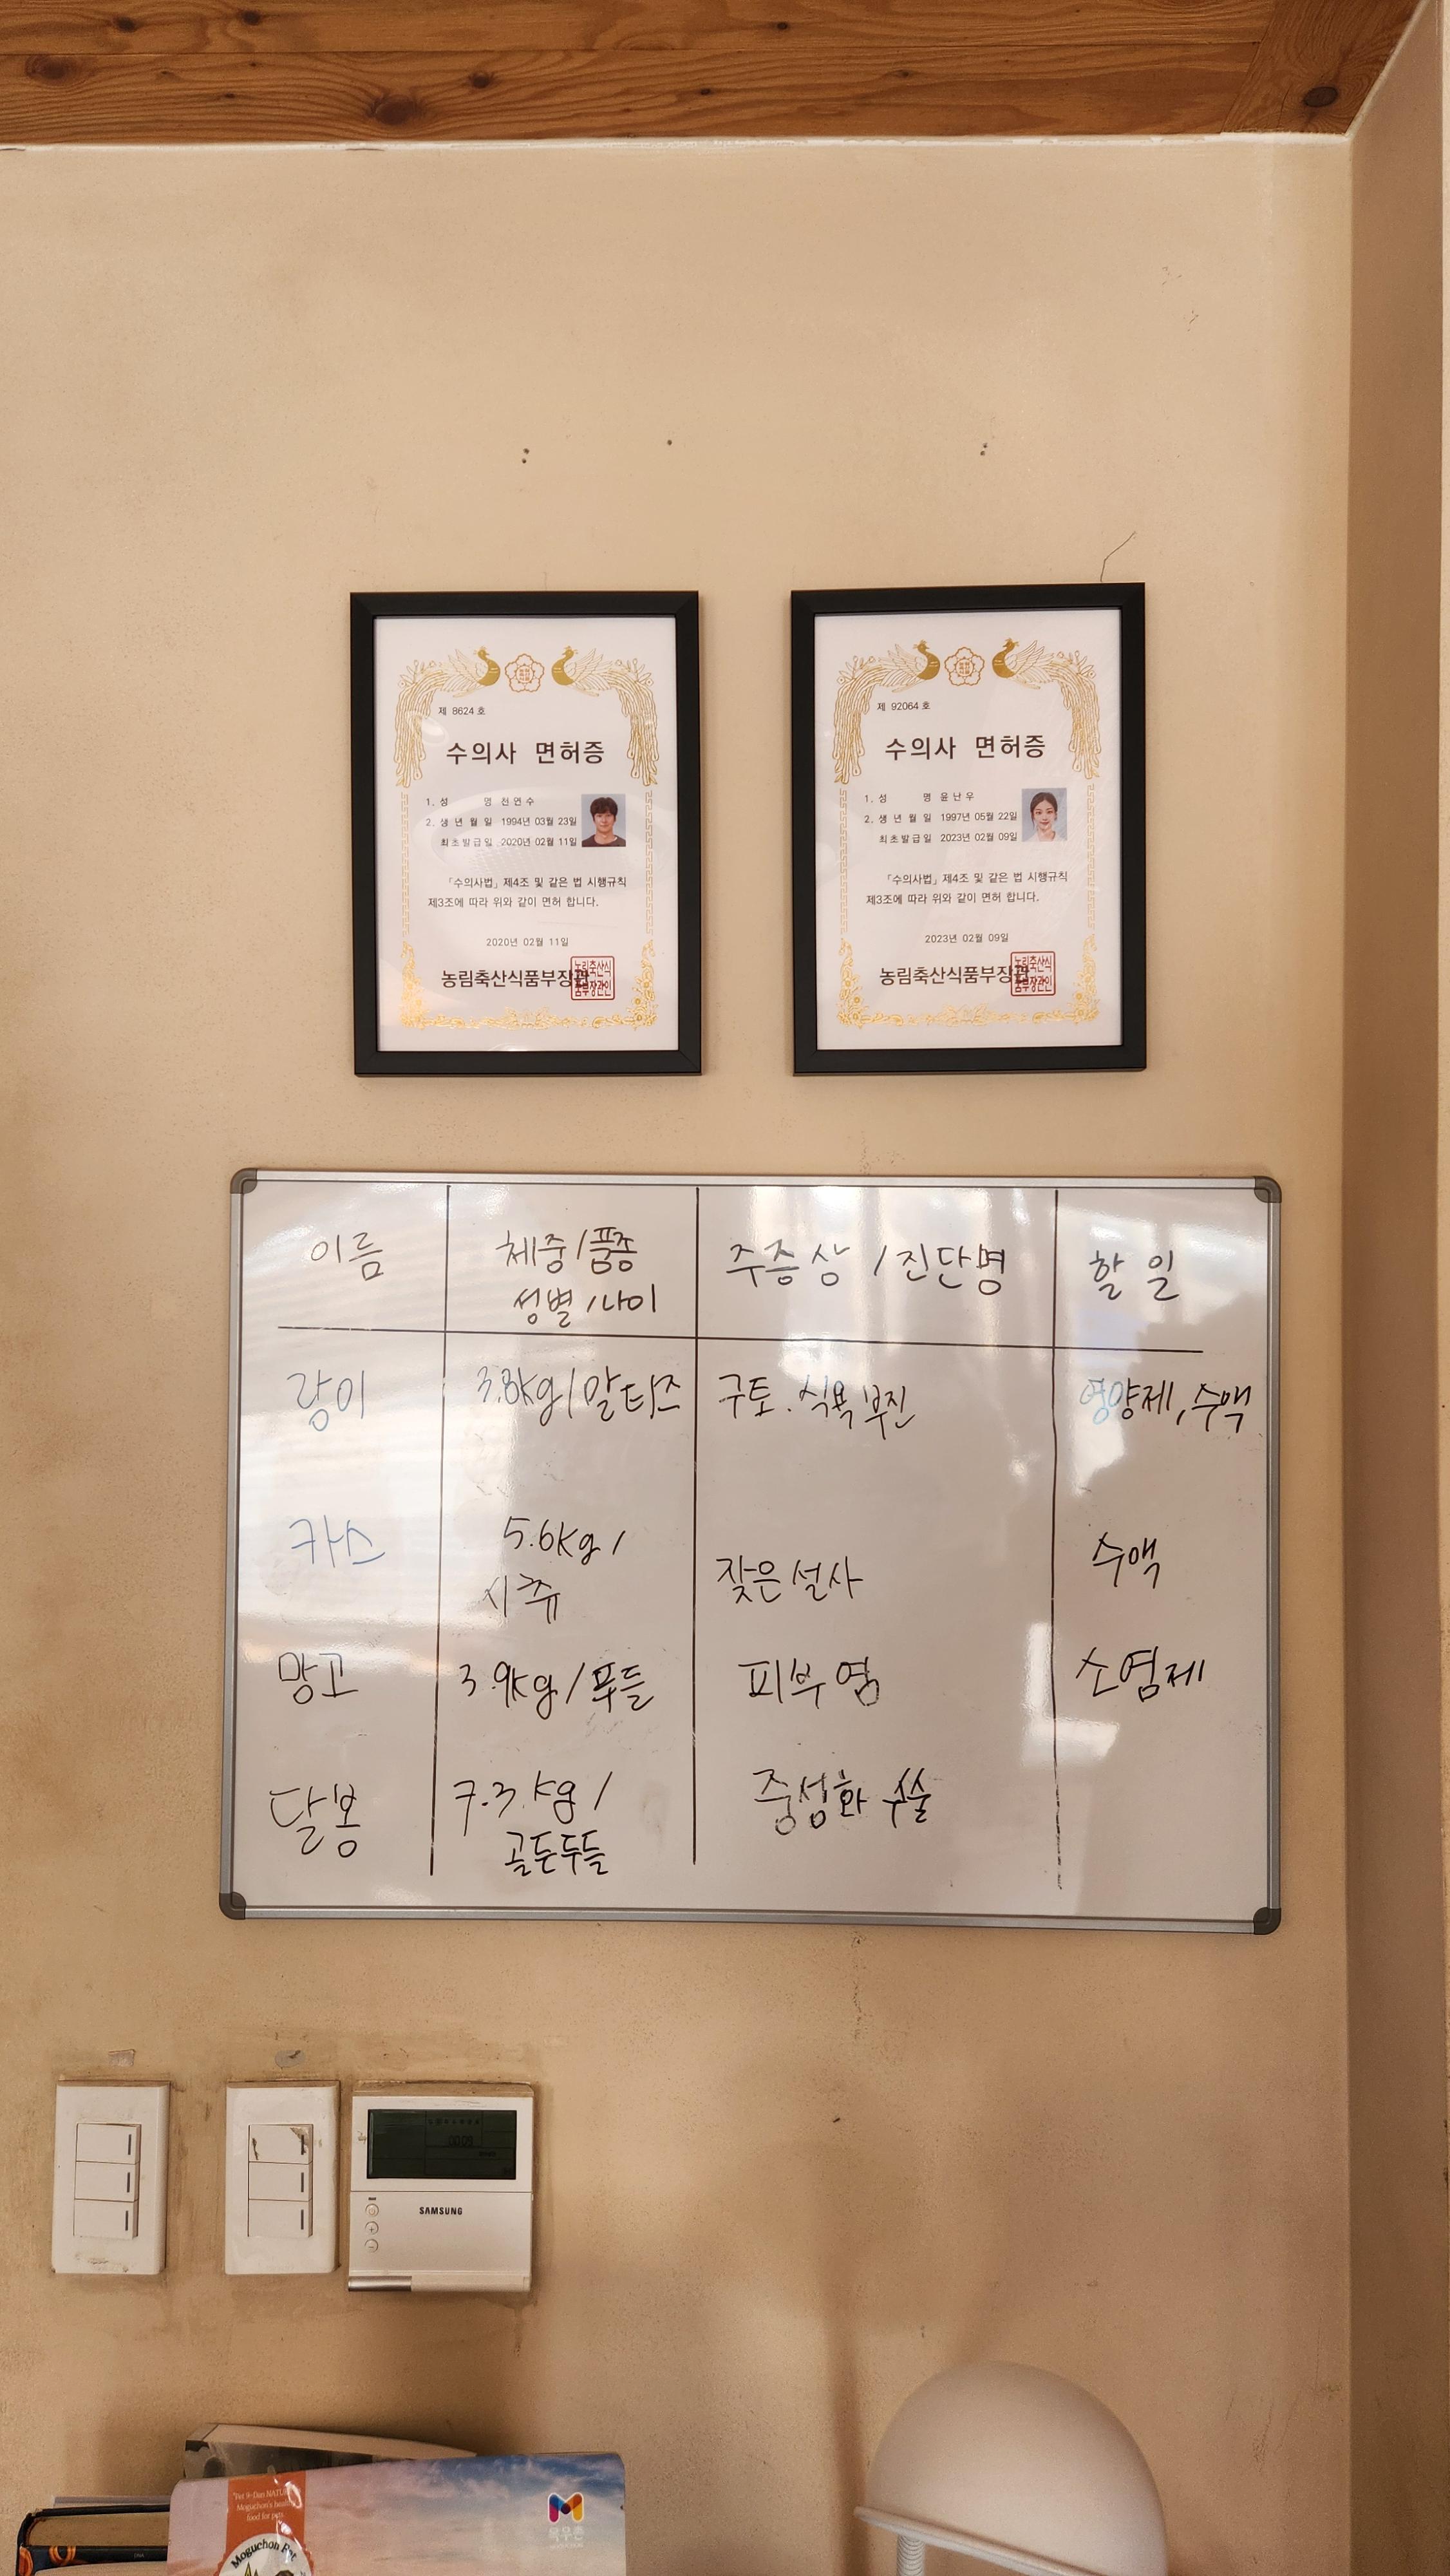 제 8624 호
수의사 면허증
1. 성 명 천연수
2. 생 년 월 일 1994년 03월 23일
최초발급일 2020년 02월 11일
「수의사법」 제4조 및 같은 법 시행규칙
제3조에 따라 위와 같이 면허 합니다.
2020년 02월 11일
농림축산식품부장관
농림축산식
품부장관인
제 92064 호
수의사 면허증
1. 성 명 윤난우
2. 생 년 월 일 1997년 05월 22일
최초발급일 2023년 02월 09일
「수의사법」 제4조 및 같은 법 시행규칙
제3조에 따라 위와 같이 면허 합니다.
2023년 02월 09일
농림축산식품부장관
농림축산식
품부장관인
이름 체중/품종 주증상 /진단명 할 일
성별/나이
랑이 3.8kg/말티즈 구토. 식욕부진 영양제, 수액
카스 5.6kg/ 잦은설사 수액
시츄
망고 3.9kg/푸들 피부염 소염제
달봉 7.3kg/ 중성화 수술
골든두들
SAMSUNG
"Pet 9-Dan NATU
Moguchon's heal
food for pets.
Moguchon Pet
목우촌